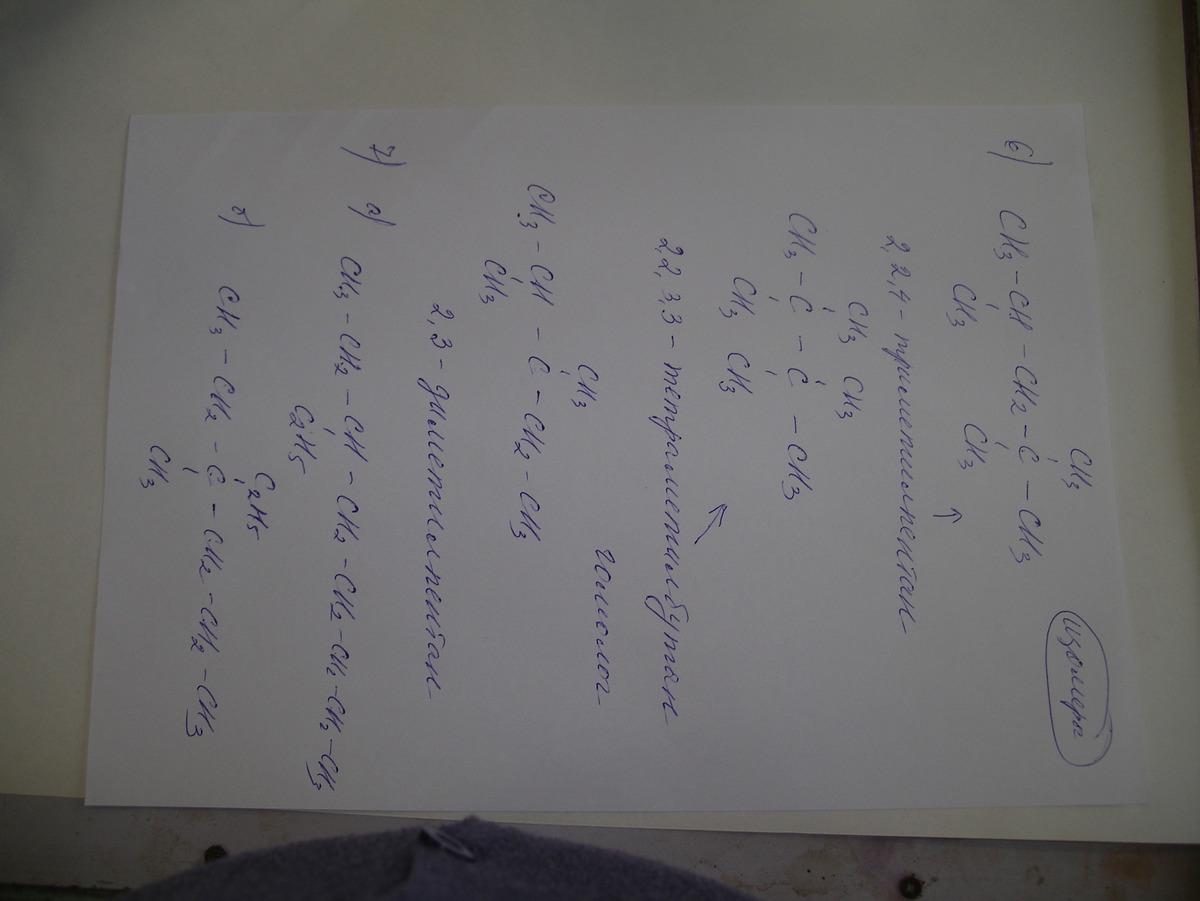 изомеры
CH3
6) CH3 - CH - CH2 - C - CH3
CH3 CH3
2,2,4 - триметилпентан
CH3 CH3
CH3 - C - C - CH3
CH3 CH3
2,2,3,3 - тетраметилбутан
гомолог
CH3
CH3 - CH - C - CH2 - CH3
CH3
2,3 - диметилпентан
7) а) CH3 - CH2 - CH - CH2 - CH2 - CH2 - CH2 - CH3
C2H5
C2H5
б) CH3 - CH2 - C - CH2 - CH2 - CH3
CH3